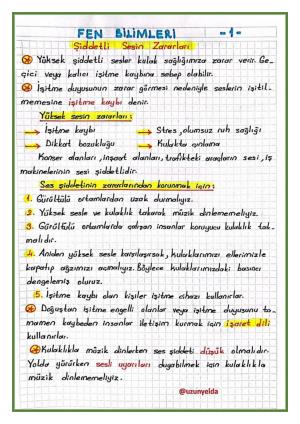 FEN BİLİMLERİ -1-
Şiddetli Sesin Zararları
Yüksek şiddetli sesler kulak sağlığımıza zarar verir. Ge-
çici veya kalıcı işitme kaybına sebep olabilir.
İşitme duyusunun zarar görmesi nedeniyle seslerin işitil-
memesine işitme kaybı denir.
Yüksek sesin zararları:
→ İşitme kaybı → Stres, olumsuz ruh sağlığı
→ Dikkat bozukluğu → Kulakta çınlama
Konser alanları, inşaat alanları, trafikteki araçların sesi, iş
makinelerinin sesi şiddetlidir.
Ses şiddetinin zararlarından korunmak için:
1. Gürültülü ortamlardan uzak durmalıyız.
2. Yüksek sesle ve kulaklık takarak müzik dinlememeliyiz.
3. Gürültülü ortamlarda çalışan insanlar koruyucu kulaklık tak-
malıdır.
4. Aniden yüksek sesle karşılaşırsak, kulaklarımızı ellerimizle
kapatıp ağzımızı açmalıyız. Böylece kulaklarımızdaki basıncı
dengelemiş oluruz.
5. İşitme kaybı olan kişiler işitme cihazı kullanırlar.
Doğuştan işitme engelli olanlar veya işitme duyusunu ta-
mamen kaybeden insanlar iletişim kurmak için işaret dili
kullanırlar.
Kulaklıkla müzik dinlerken ses şiddeti düşük olmalıdır.
Yolda yürürken sesli uyarıları duyabilmek için kulaklıkla
müzik dinlememeliyiz.
@uzunyelda